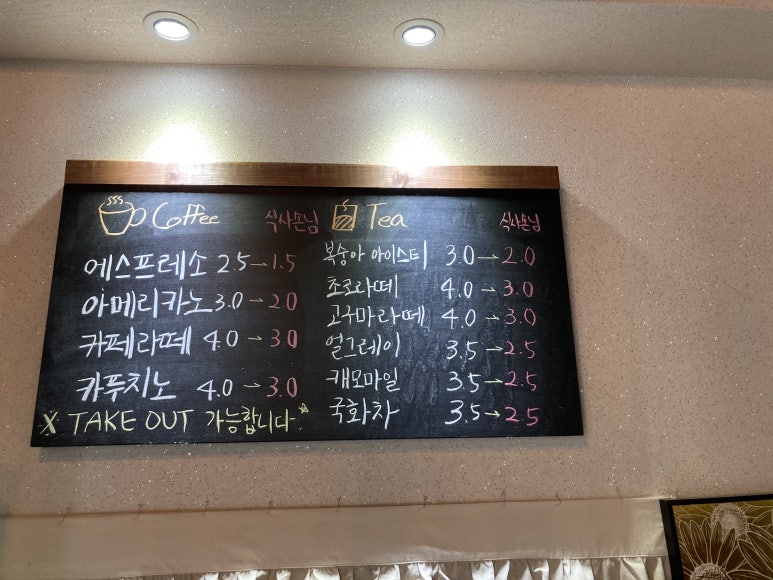 Coffee 식사손님
에스프레소 2.5→1.5
아메리카노 3.0→2.0
카페라떼 4.0→3.0
카푸치노 4.0→3.0
※ TAKE OUT 가능합니다.
Tea 식사손님
복숭아 아이스티 3.0→2.0
쵸코라떼 4.0→3.0
고구마라떼 4.0→3.0
얼그레이 3.5→2.5
캐모마일 3.5→2.5
국화차 3.5→2.5